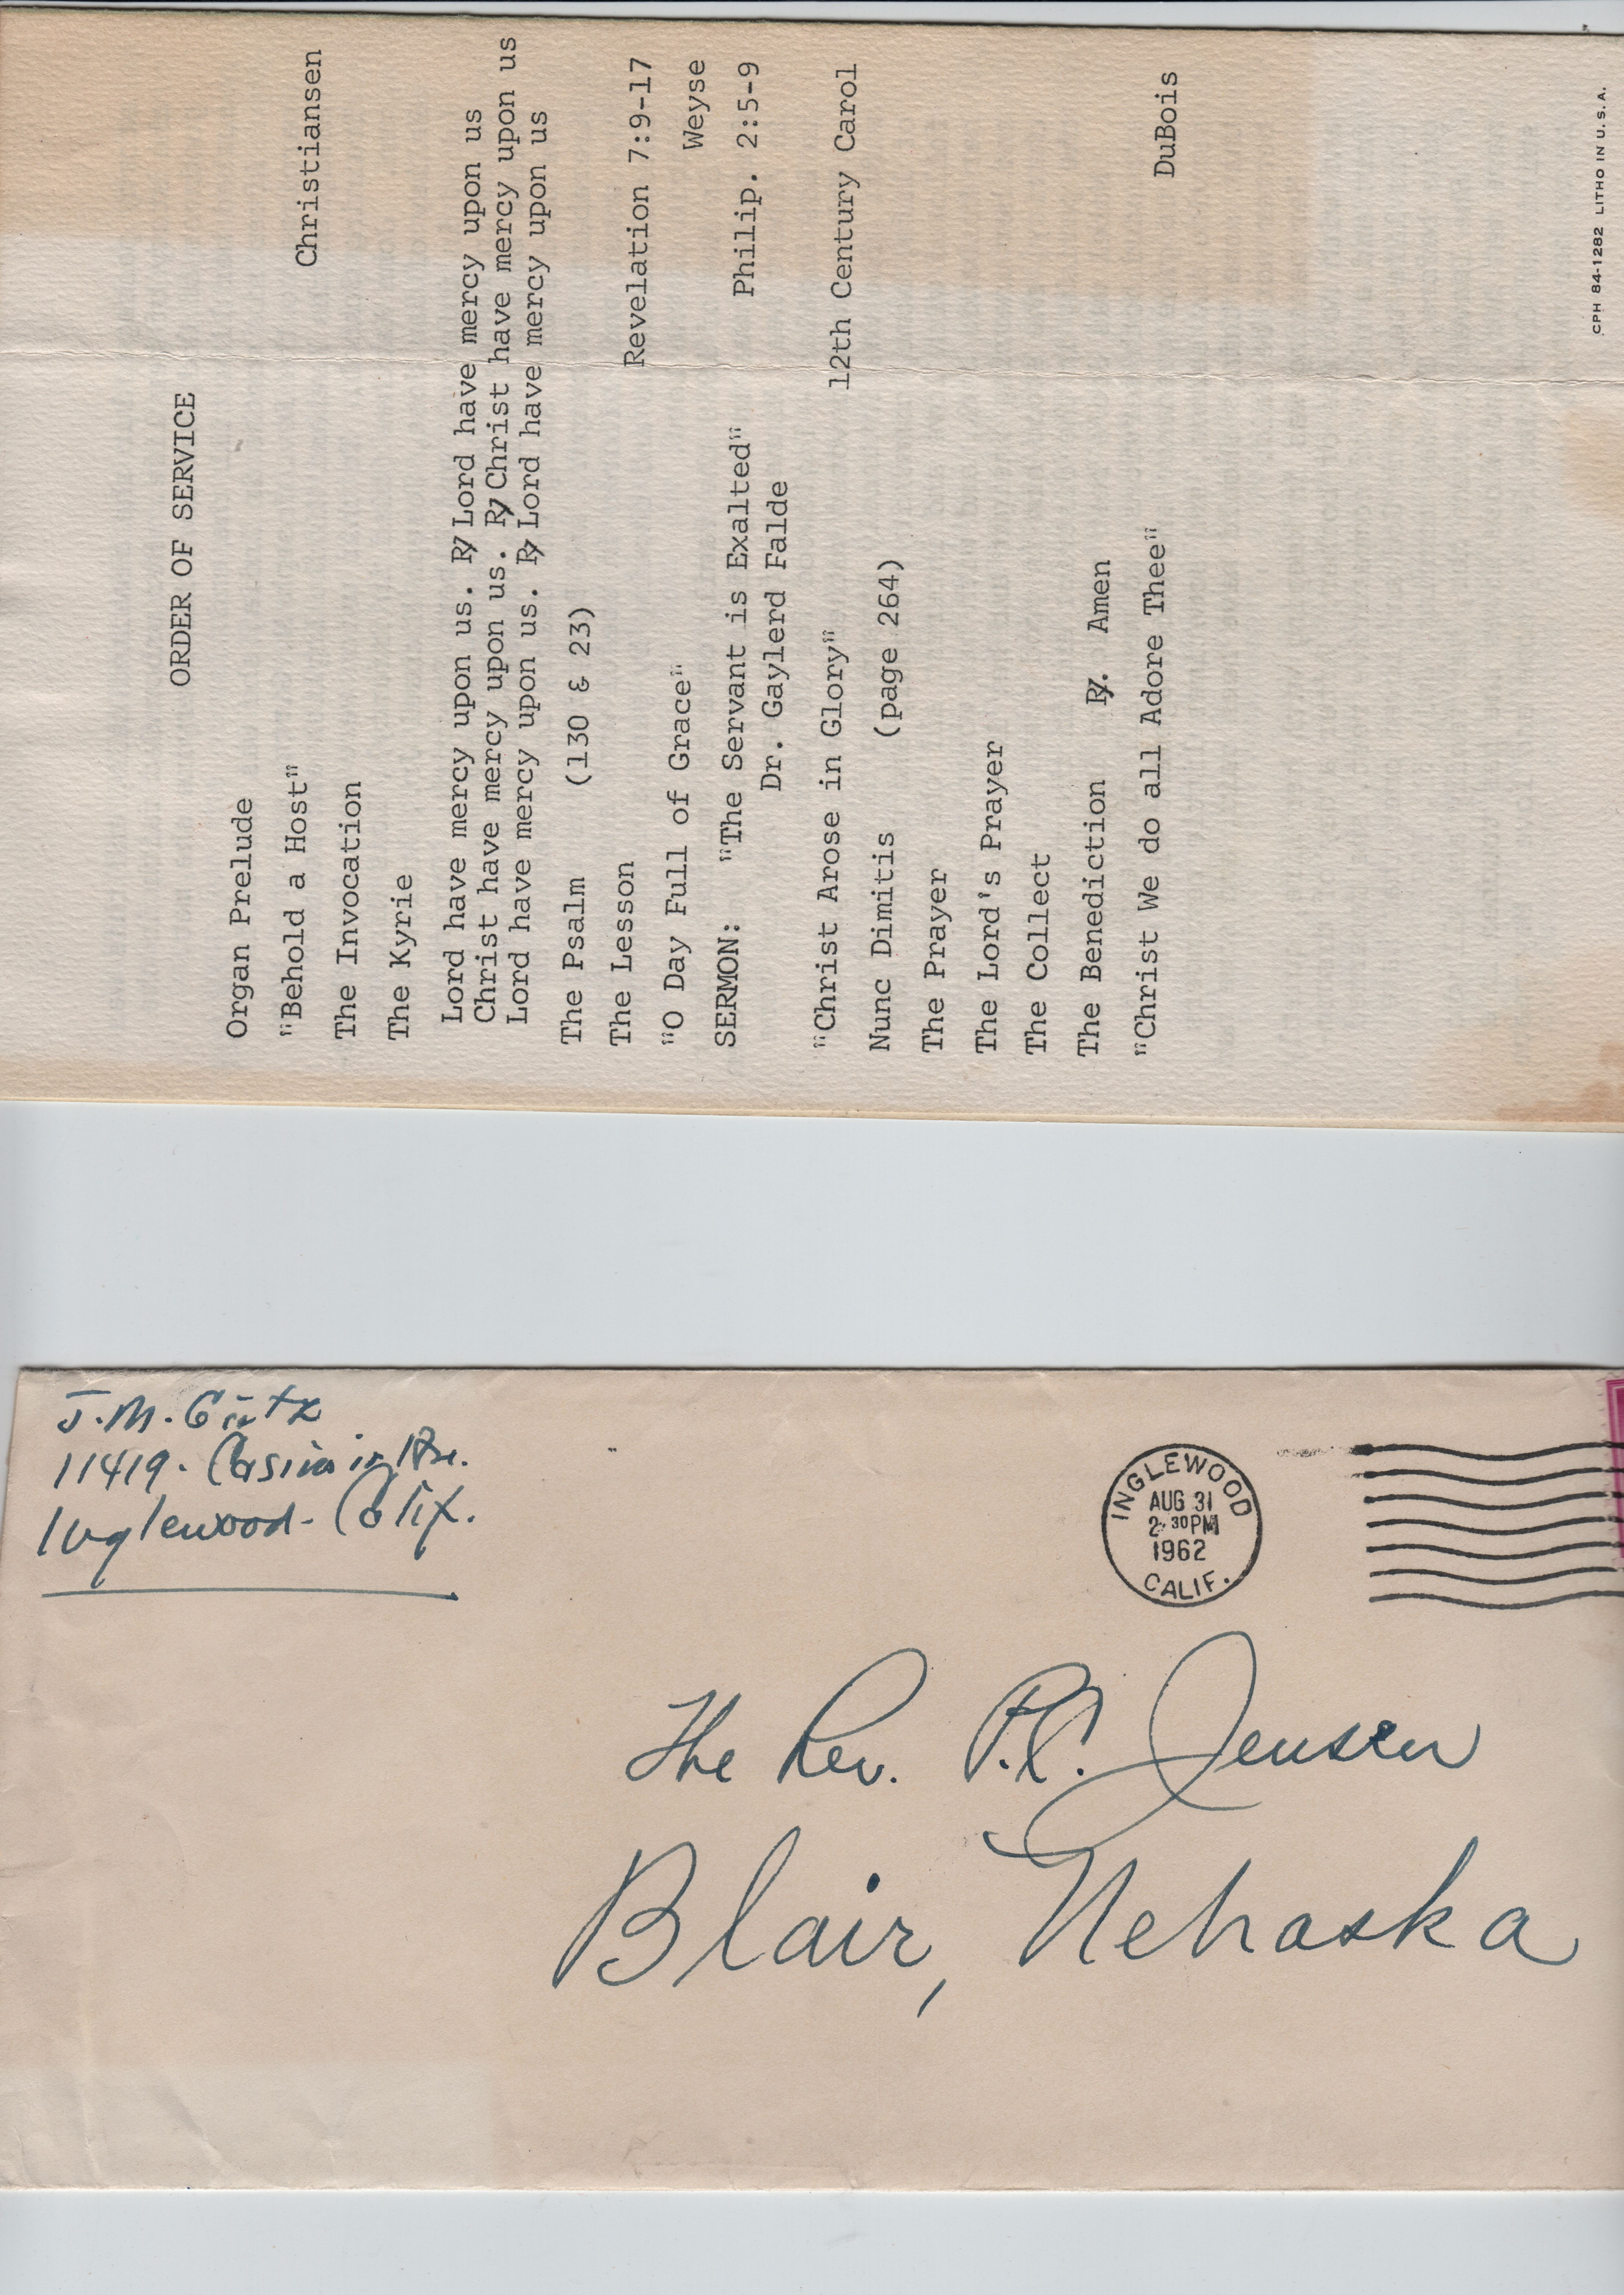 ORDER OF SERVICE
Organ Prelude
"Behold a Host" Christiansen
The Invocation
The Kyrie
Lord have mercy upon us. ℟ Lord have mercy upon us
Christ have mercy upon us. ℟ Christ have mercy upon us
Lord have mercy upon us. ℟ Lord have mercy upon us
The Psalm (130 & 23)
The Lesson Revelation 7:9-17
"O Day Full of Grace" Weyse
SERMON: "The Servant is Exalted" Philip. 2:5-9
Dr. Gaylerd Falde
"Christ Arose in Glory" 12th Century Carol
Nunc Dimitis (page 264)
The Prayer
The Lord's Prayer
The Collect
The Benediction ℟. Amen
"Christ We do all Adore Thee" DuBois
CPH 84-1282 LITHO IN U.S.A.
J.M.
11419. Ave.
Inglewood- Calif.
INGLEWOOD
AUG 31
2 30PM
1962
CALIF.
The Rev. P.C. Jensen
Blair, Nebraska